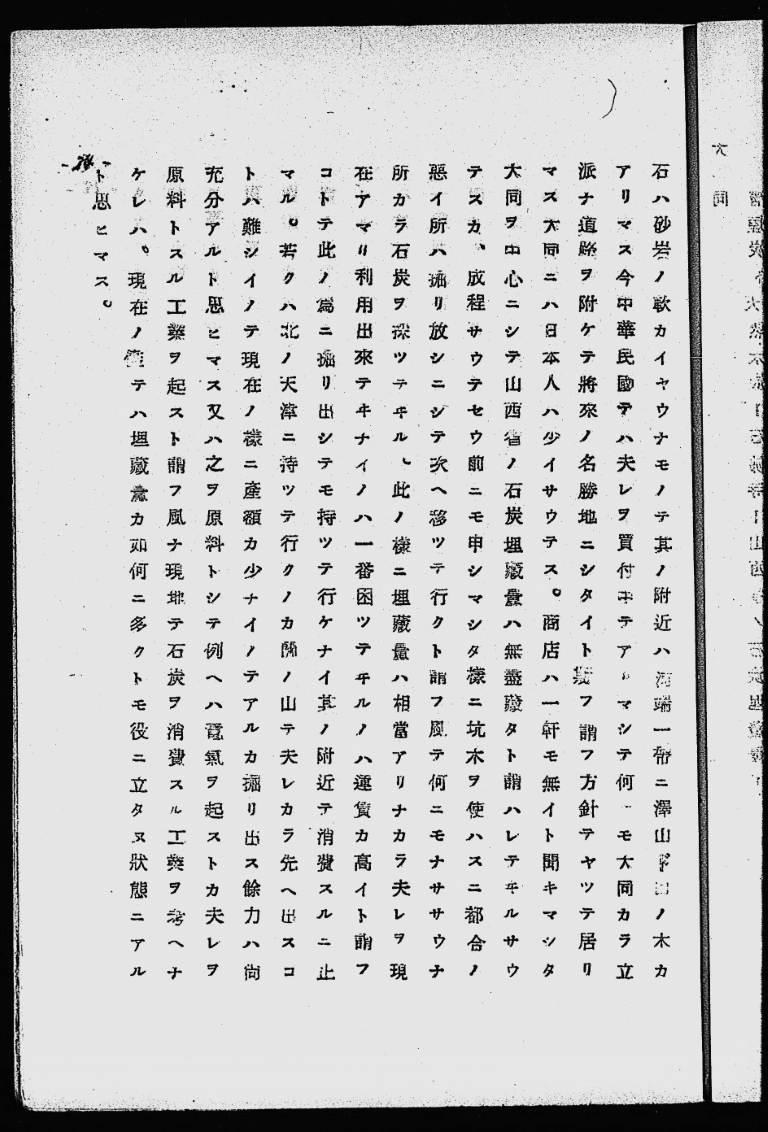 大同
石ハ砂岩ノ軟カイヤウナモノテ其ノ附近ハ河端一帶ニ澤山ノ木カ
アリマス今中華民國テハ夫レヲ買付ケテアリマシテ何モ大同カラ立
派ナ道路ヲ附ケテ將來ノ名勝地ニシタイト謂フ方針テヤツテ居リ
マス大同ニハ日本人ハ少イサウテス。商店ハ一軒モ無イト聞キマシタ
大同ヲ中心ニシテ山西省ノ石炭埋藏量ハ無盡藏タト謂ハレテヰルサウ
テスカ、成程サウテセウ前ニモ申シマシタ樣ニ坑木ヲ使ハスニ都合ノ
惡イ所ハ掘リ放シニシテ次ヘ移ツテ行クト謂フ風テ何ニモナササウナ
所カラ石炭ヲ採ツテヰル、此ノ樣ニ埋藏量ハ相當アリナカラ夫レヲ現
在アマリ利用出來テヰナイノハ一番困ツテヰルノハ運賃カ高イト謂フ
コトテ此ノ爲ニ掘リ出シテモ持ツテ行ケナイ其ノ附近テ消費スルニ止
マル。若クハ北ノ天津ニ持ツテ行クノカ關ノ山テ夫レカラ先ヘ出スコ
トハ難シイノテ現在ノ樣ニ產額カ少ナイノテアルカ掘リ出ス餘力ハ尙
充分アルト思ヒマス又ハ之ヲ原料トシテ例ヘハ電氣ヲ起ストカ夫レヲ
原料トスル工業ヲ起スト謂フ風ナ現地テ石炭ヲ消費スル工業ヲ考ヘナ
ケレハ。現在ノ儘テハ埋藏量カ如何ニ多クトモ役ニ立タヌ狀態ニアル
ト思ヒマス。